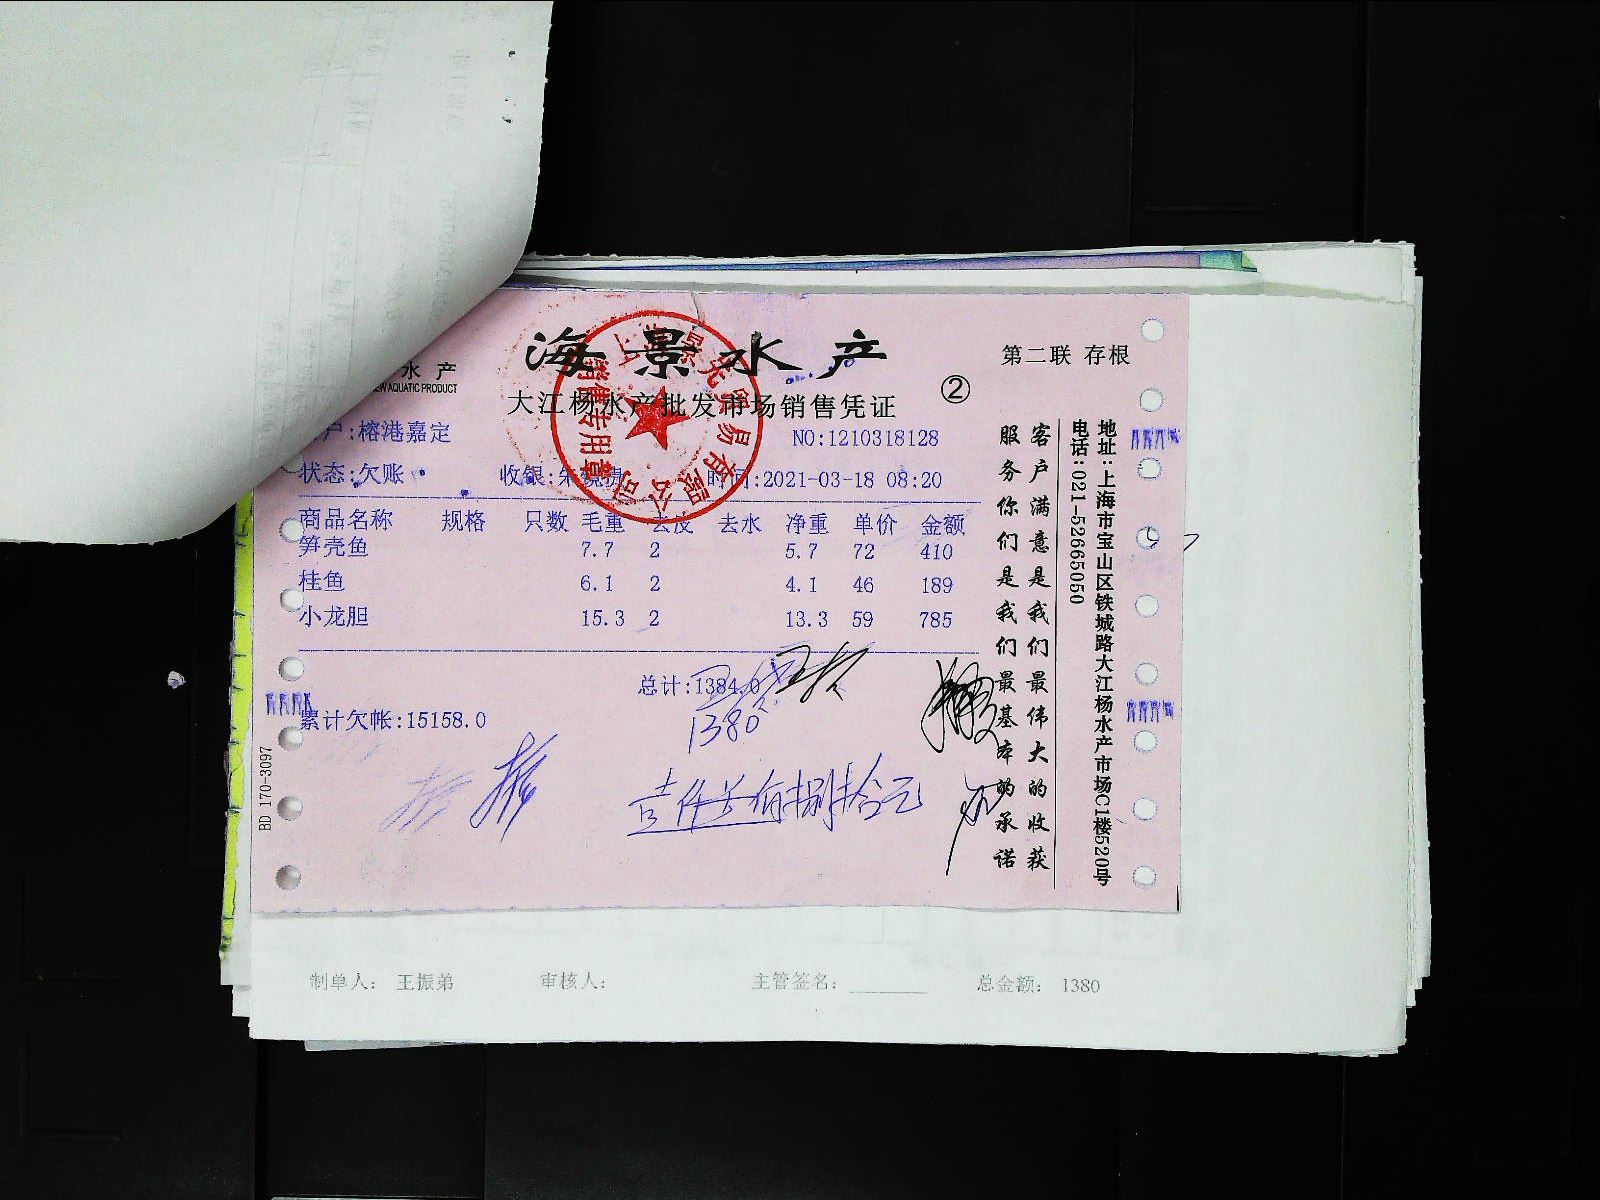 海景水产
第二联 存根
水产
EW AQUATIC PRODUCT
大江杨水产批发市场销售凭证
②
户:榕港嘉定
NO:1210318128
状态:欠账
收银:朱
时间:2021-03-18 08:20
商品名称 规格 只数 毛重 去皮 去水 净重 单价 金额
笋壳鱼 7.7 2 5.7 72 410
桂鱼 6.1 2 4.1 46 189
小龙胆 15.3 2 13.3 59 785
总计:1384.0
1380
累计欠帐:15158.0
壹仟叁佰捌拾元
BD 170-3097
客户满意是我们最伟大的收获
服务你们是我们最基本的承诺
地址:上海市宝山区铁城路大江杨水产市场C1楼520号
电话:021-52665050
销售专用章
制单人: 王振弟 审核人: 主管签名: 总金额: 1380